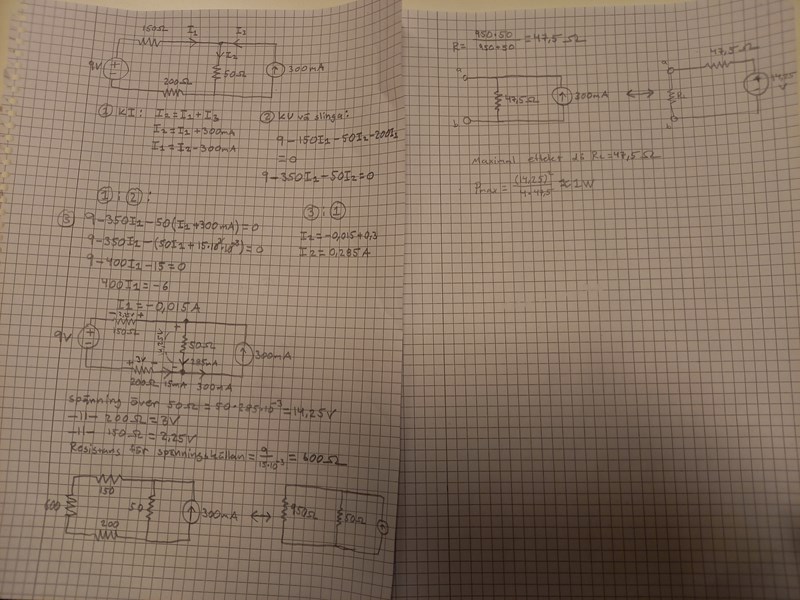 150Ω I₁ I₃
I₂
9V 50Ω 300mA
200Ω
① KI: I₂=I₁+I₃
I₂=I₁+300mA
I₁=I₂-300mA
② KV vä slinga:
9-150I₁-50I₂-200I₁
=0
9-350I₁-50I₂=0
① i ②:
③ 9-350I₁-50(I₁+300mA)=0
9-350I₁-(50I₁+15·10³·10⁻³)=0
9-400I₁-15=0
400I₁=-6
I₁=-0,015A
③ i ①
I₂=-0,015+0,3
I₂=0,285A
- 2,25V +
150Ω
9V 50Ω 300mA
285mA
+ 3V -
200Ω 15mA 300mA
Spänning över 50Ω=50·285·10⁻³=14,25V
-11- 200Ω=3V
-11- 150Ω=2,25V
Resistans för spänningskällan=9/15·10⁻³=600Ω
150
600 50 300mA ↔ 950Ω 50Ω
200
R=950·50/950+50=47,5Ω
47,5Ω
47,5Ω 300mA ↔ RL
V
Maximal effekt då RL=47,5Ω
Pmax=(14,25)²/4·47,5≈1W